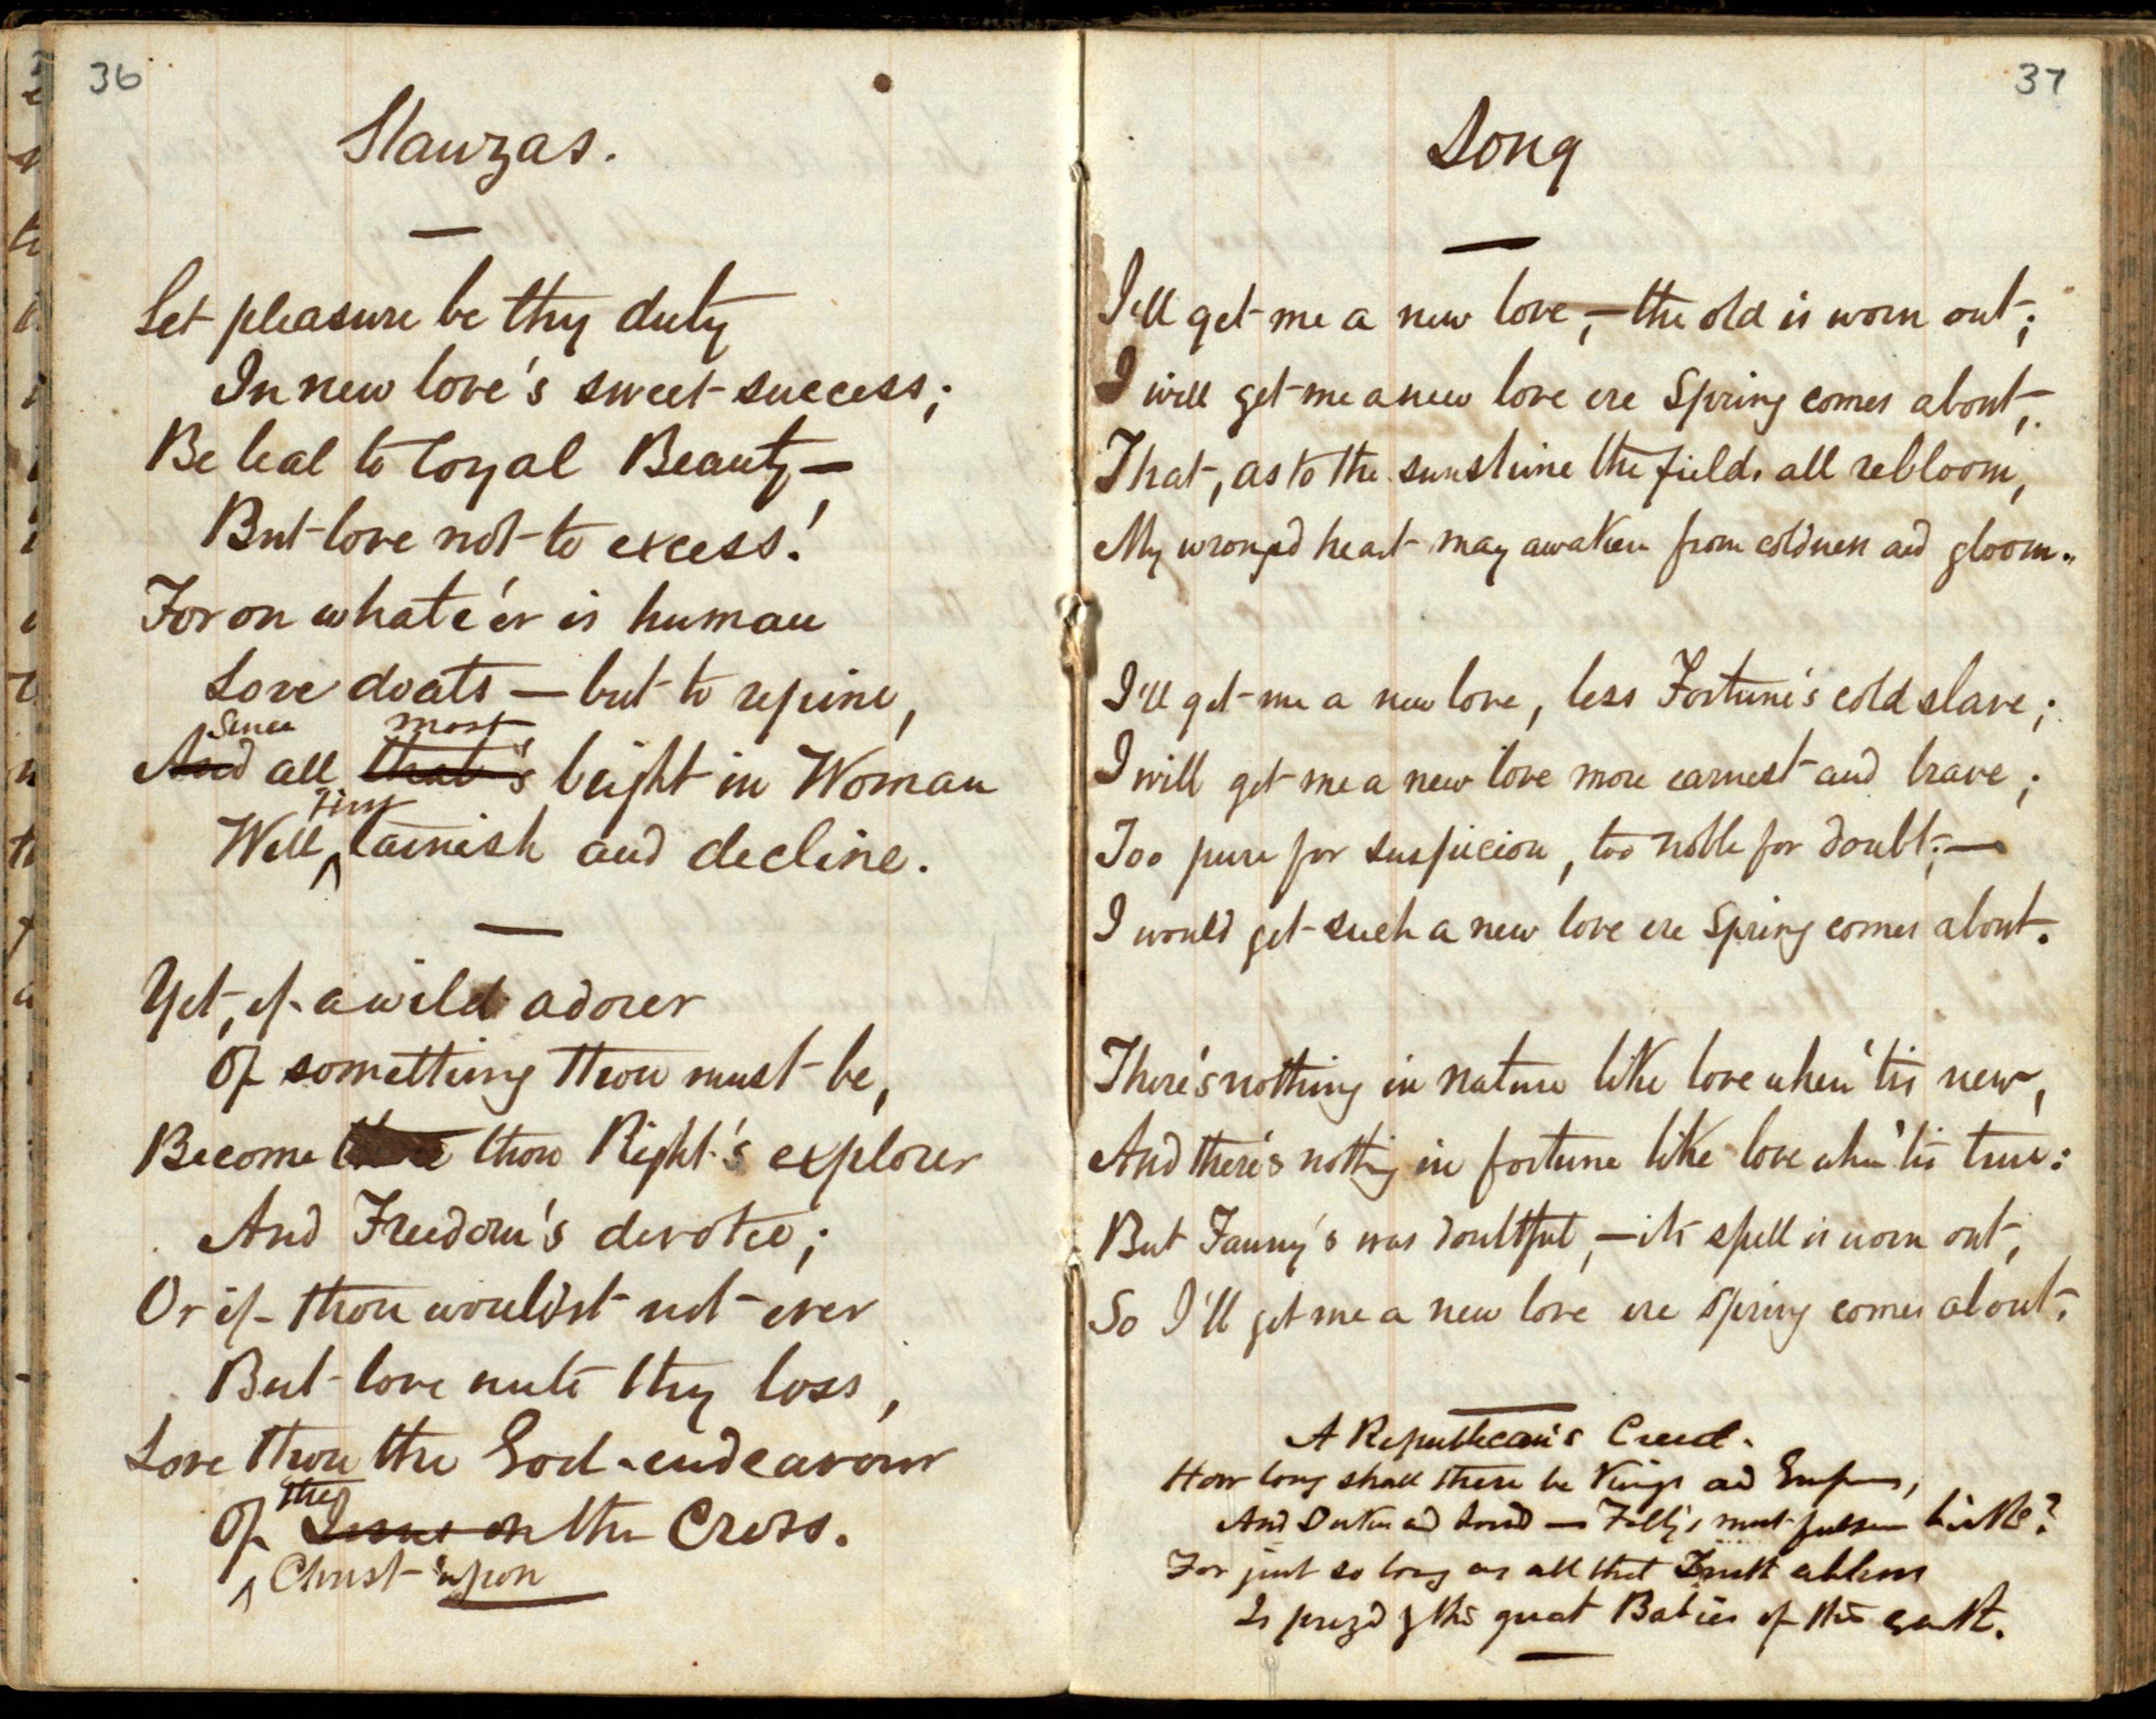 36
Stanzas.
Let pleasure be thy duty
In new love's sweet success;
Be leal to loyal Beauty—
But love not to excess!
For on whate'er is human
Love doats — but to repine,
Since most
And all that's bright in Woman
first
Will tarnish and decline.
Yet, if a wild adorer
Of something thou must be,
Become thou Right's explorer
And Freedom's devotee;
Or if thou wouldst not ever
But love unto thy loss,
Love thou the God-endeavour
the
Of Jesus on the Cross.
Christ upon
37
Song
I'll get me a new love,—the old is worn out;
I will get me a new love ere Spring comes about,
That, as to the sunshine the fields all rebloom,
My wronged heart may awaken from coldness and gloom.
I'll get me a new love, less Fortune's cold slave;
I will get me a new love more earnest and brave;
Too pure for suspicion, too noble for doubt;—
I would get such a new love ere Spring comes about.
There's nothing in nature like love when 'tis new,
And there's nothing in fortune like love when 'tis true:
But Fanny's was doubtful,—its spell is worn out,
So I'll get me a new love ere Spring comes about.
A Republican's Creed.
How long shall there be Kings and
And Dukes and Lords — Folly's most fulsome birth?
For just so long as all that Truth abhors
Is prized by the great Babies of the earth.